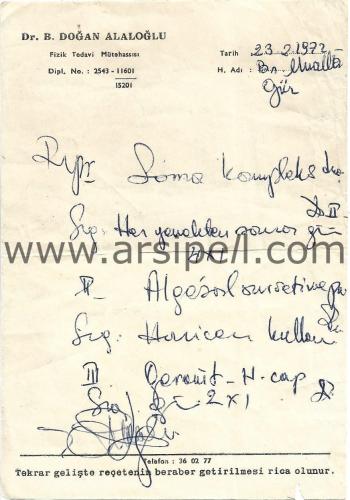 Dr. B. DOĞAN ALALOĞLU
Fizik Tedavi Mütehassısı
Dipl. No. : 2543 - 11601
15201
Tarih : 23.2.1972
H. Adı : Bn Mualla
Gür
Rp/
Soma Kompleks
II
Sig: Her yemekten sonra
www.arsipel-l.com
4x1
II
Sig: Haricen kullan
III Geramit - H. cap
2x1
Telefon : 36 02 77
Tekrar gelişte reçetenin beraber getirilmesi rica olunur.